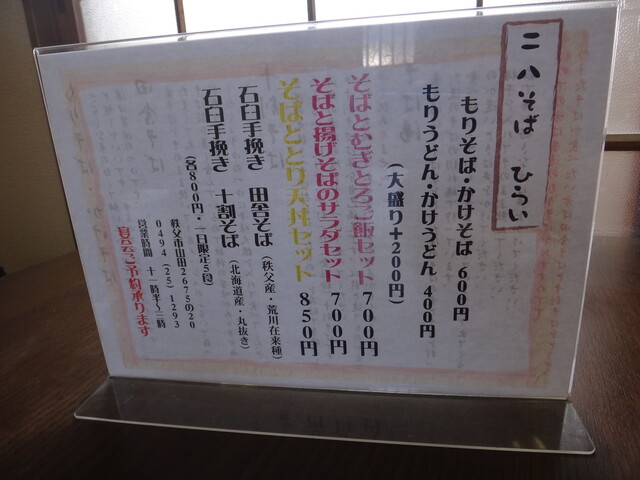 二八そば ひらい
もりそば・かけそば 600円
もりうどん・かけうどん 400円
(大盛り+200円)
そばとむぎとろご飯セット 700円
そばと揚げそばのサラダセット 700円
そばととり天丼セット 850円
石臼手挽き 田舎そば (秩父産・荒川在来種)
石臼手挽き 十割そば (北海道産・丸抜き)
(各800円・一日限定5食)
秩父市山田2675の20
0494(25)1293
営業時間 十一時半~二時
宴会ご予約承ります